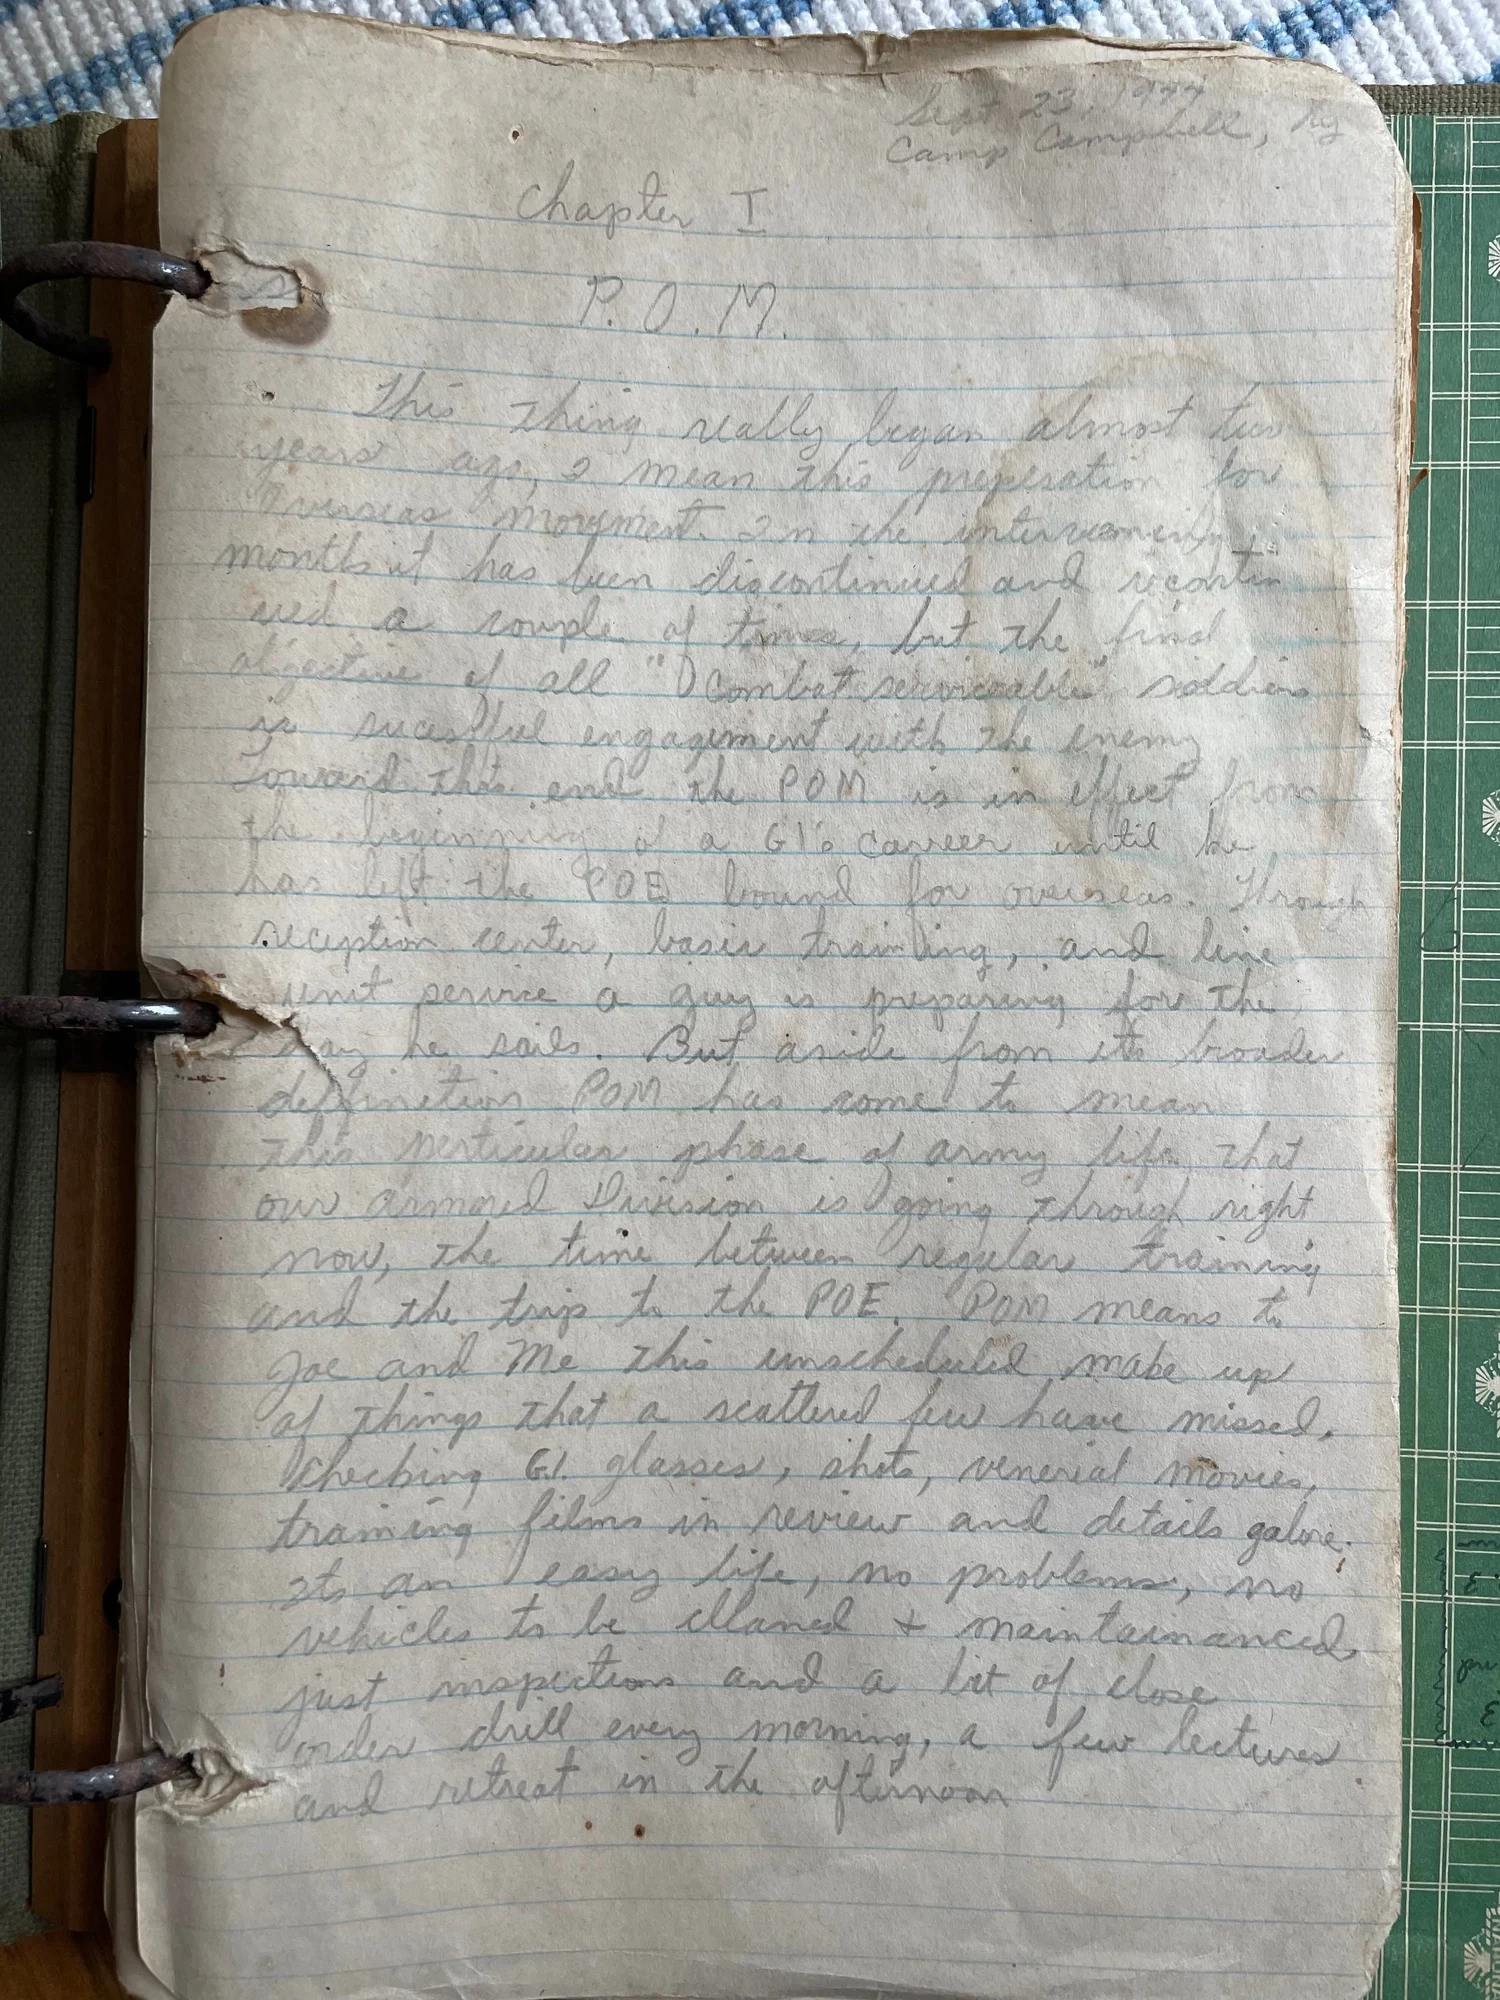 Sept 23, 1944
Camp Campbell, Ky
Chapter I
P.O.M.
This thing really began almost two
years ago, I mean this preperation for
Overseas Movement. In the interveening
months it has been discontinued and recontin
ued a couple of times, but the final
objective of all "combat serviceable" soldiers
is sucessful engagement with the enemy
Toward this end the POM is in effect from
the beginning of a GI's career until he
has left the POE bound for overseas. Through
reception center, basic training, and line
unit service a guy is preparing for the
day he sails. But aside from its broader
deffinetion POM has come to mean
this perticular phase of army life that
our armored Division is going through right
now, the time between regular training
and the trip to the POE. POM means to
Joe and Me this unscheduled make up
of things that a scattered few have missed.
Checking G.I. glasses, shots, venerial movies,
training films in review and details galore.
Its an easy life, no problems, no
vehicles to be cleaned + maintainanced,
just inspections and a bit of close
order drill every morning, a few lectures
and retreat in the afternoon